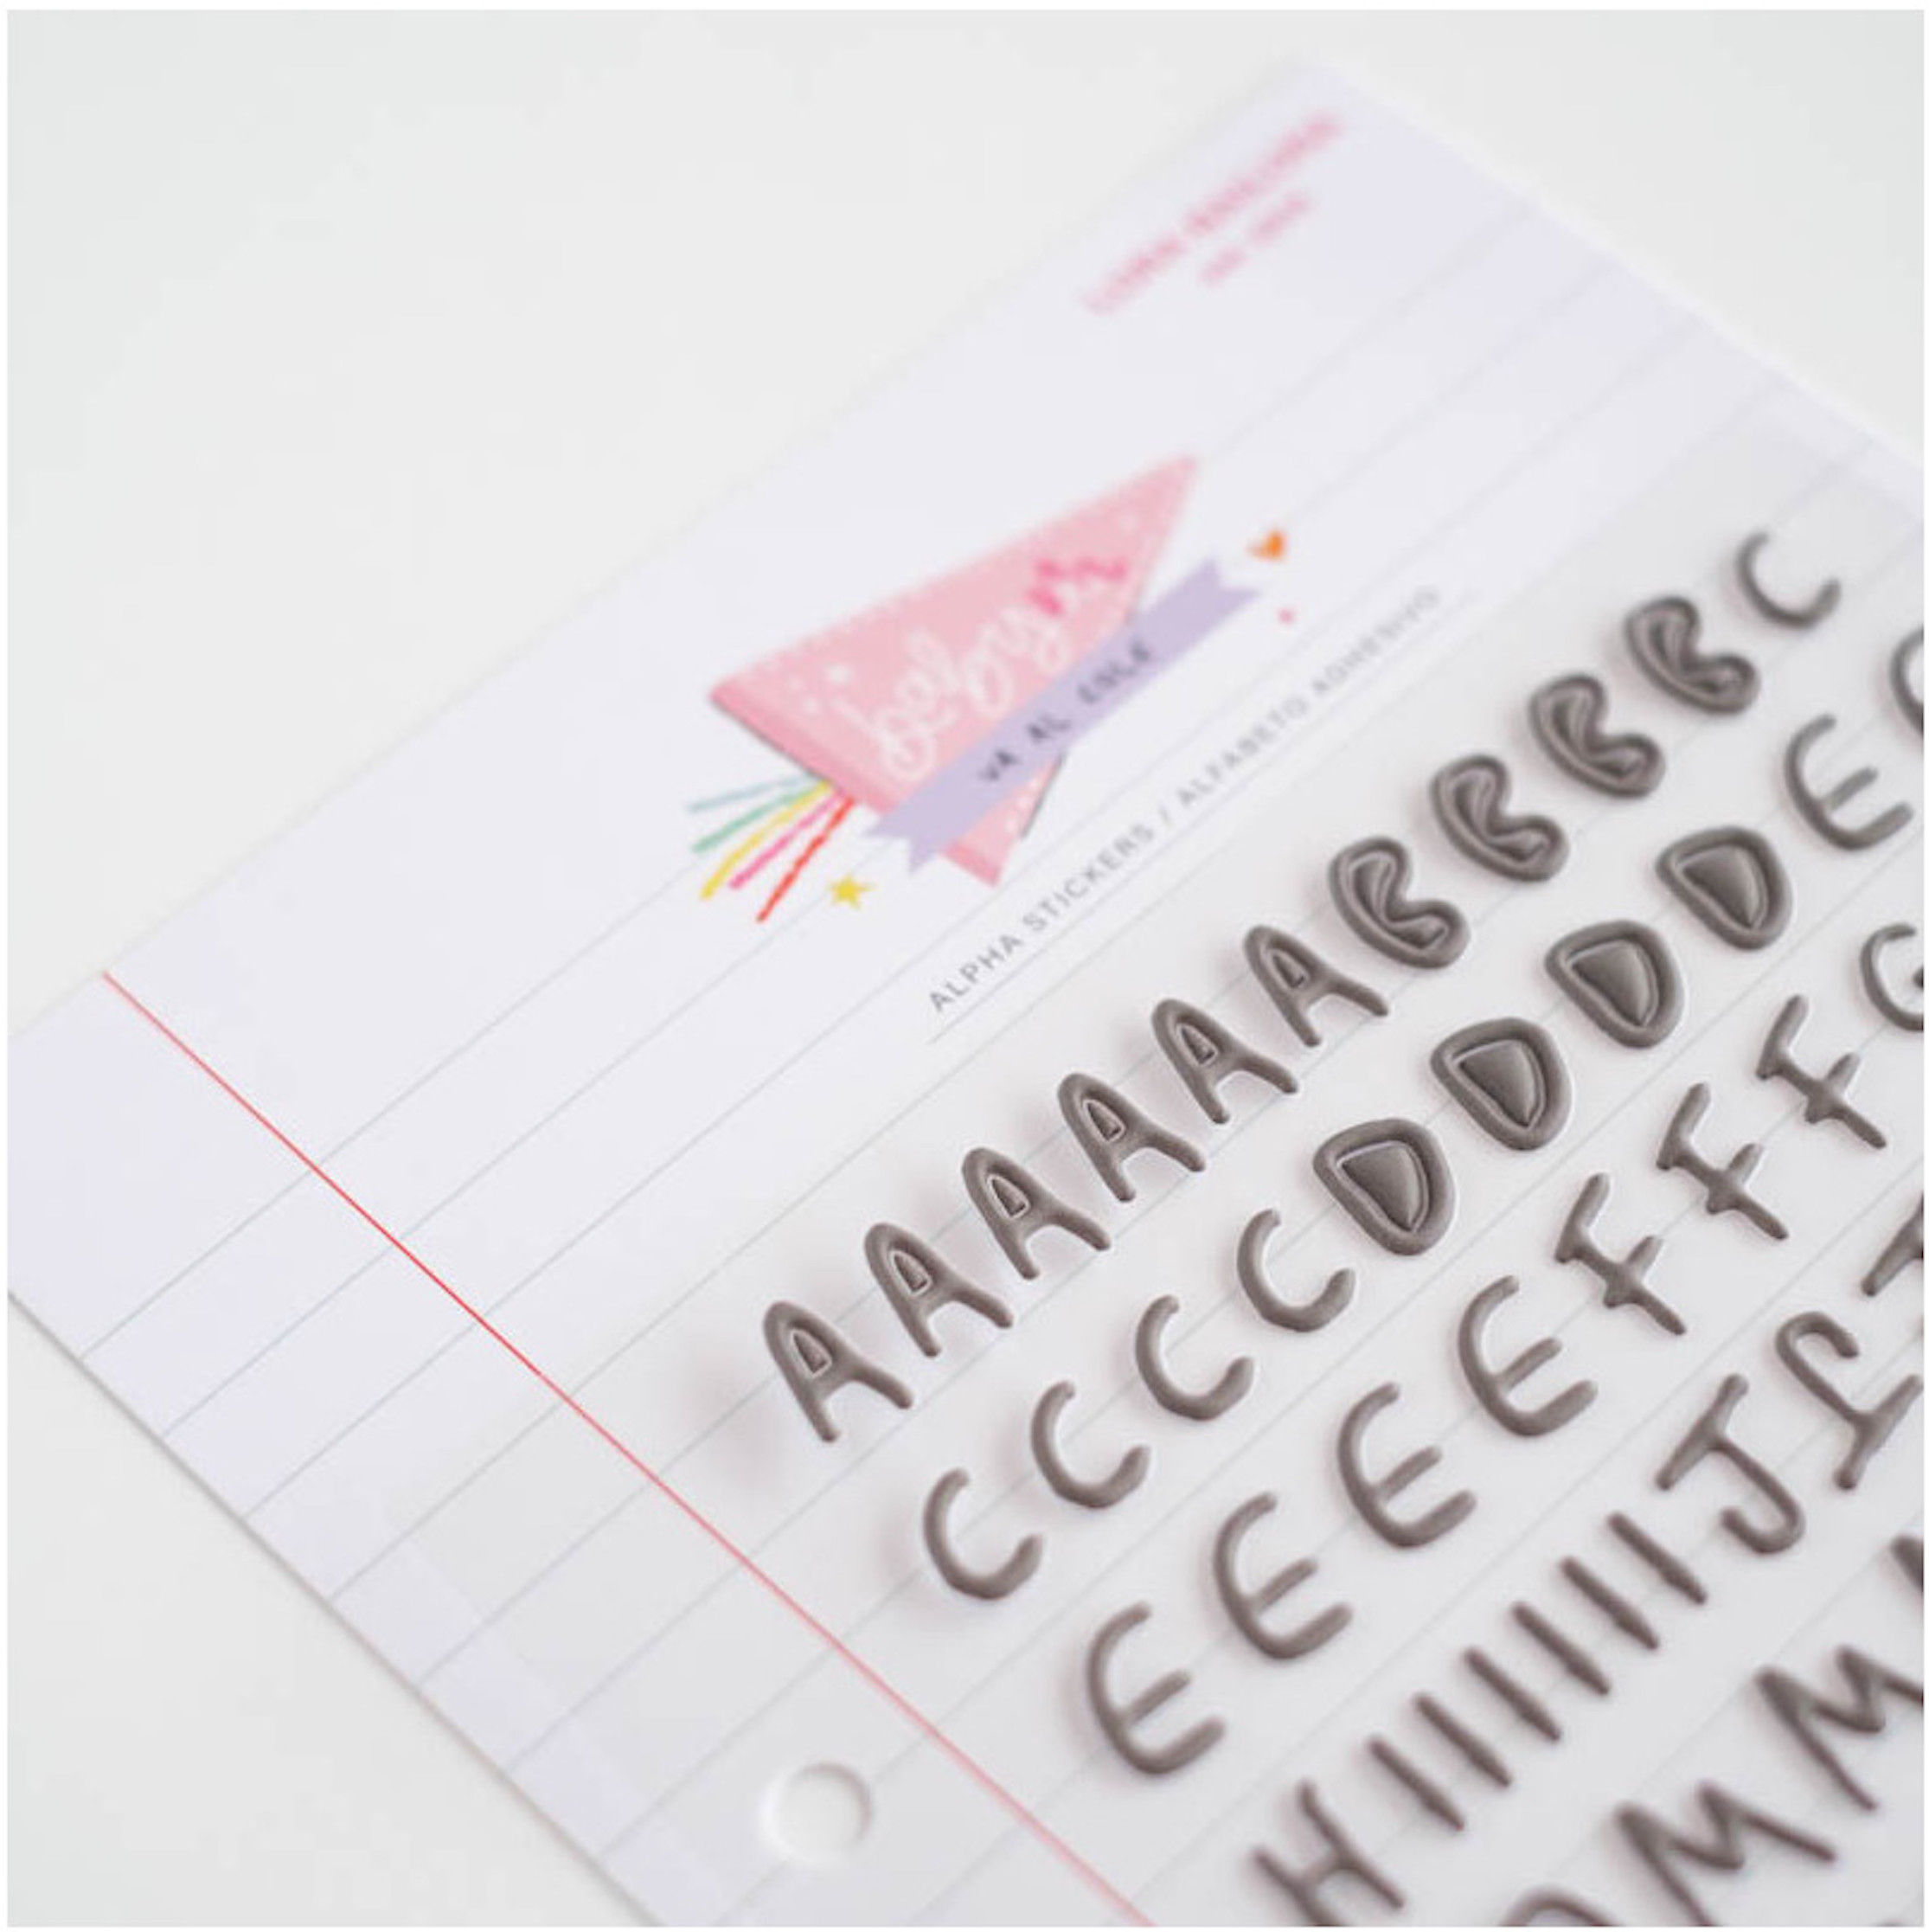 VA AL COLE
ALPHA STICKERS / ALFABETO ADHESIVO
AAAAAABBBBC
CCCCDDDDE
EEEEFFFG
HIIIIIIJ
MM